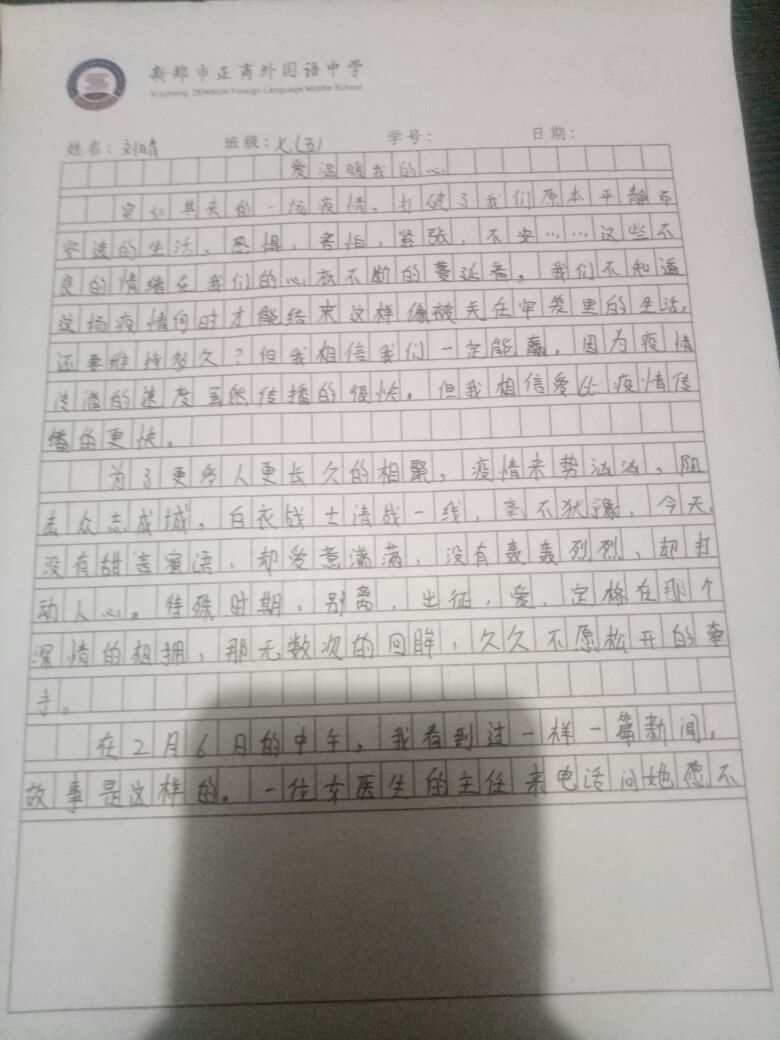 新郑市正商外国语中学
Xinzheng ZENSUN Foreign Language Middle School
姓名：刘晴 班级：七(五) 学号： 日期：
爱温暖我的心
突如其来的一场疫情，打破了我们原本平静而
安逸的生活，恐惧，害怕，紧张，不安……这些不
良的情绪在我们的心底不断的蔓延着，我们不知道
这场疫情何时才能结束这样像被关在牢笼里的生活，
还要维持多久？但我相信我们一定能赢，因为疫情
传播的速度虽然传播的很快。但我相信爱比疫情传
播的更快。
为了更多人更长久的相聚，疫情来势汹汹，阻
去众志成城，白衣战士请战一线，毫不犹豫，今天，
没有甜言蜜语，却爱意满满，没有轰轰烈烈，却打
动人心。特殊时期，别离，出征，爱，定格在那个
深情的相拥，那无数次的回眸，久久不愿松开的牵
手。
在2月6日的中午，我看到过一样一篇新闻，
故事是这样的。一位女医生的主任来电话问她愿不